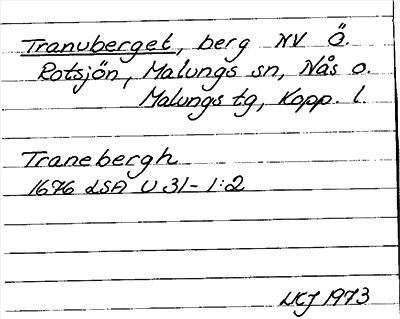 Tranuberget, berg NV Ö.
Rotsjön, Malungs sn, Nås o.
Malungs tg, Kopp. l.
Tranebergh
1676 LSA U 31-1:2
1973